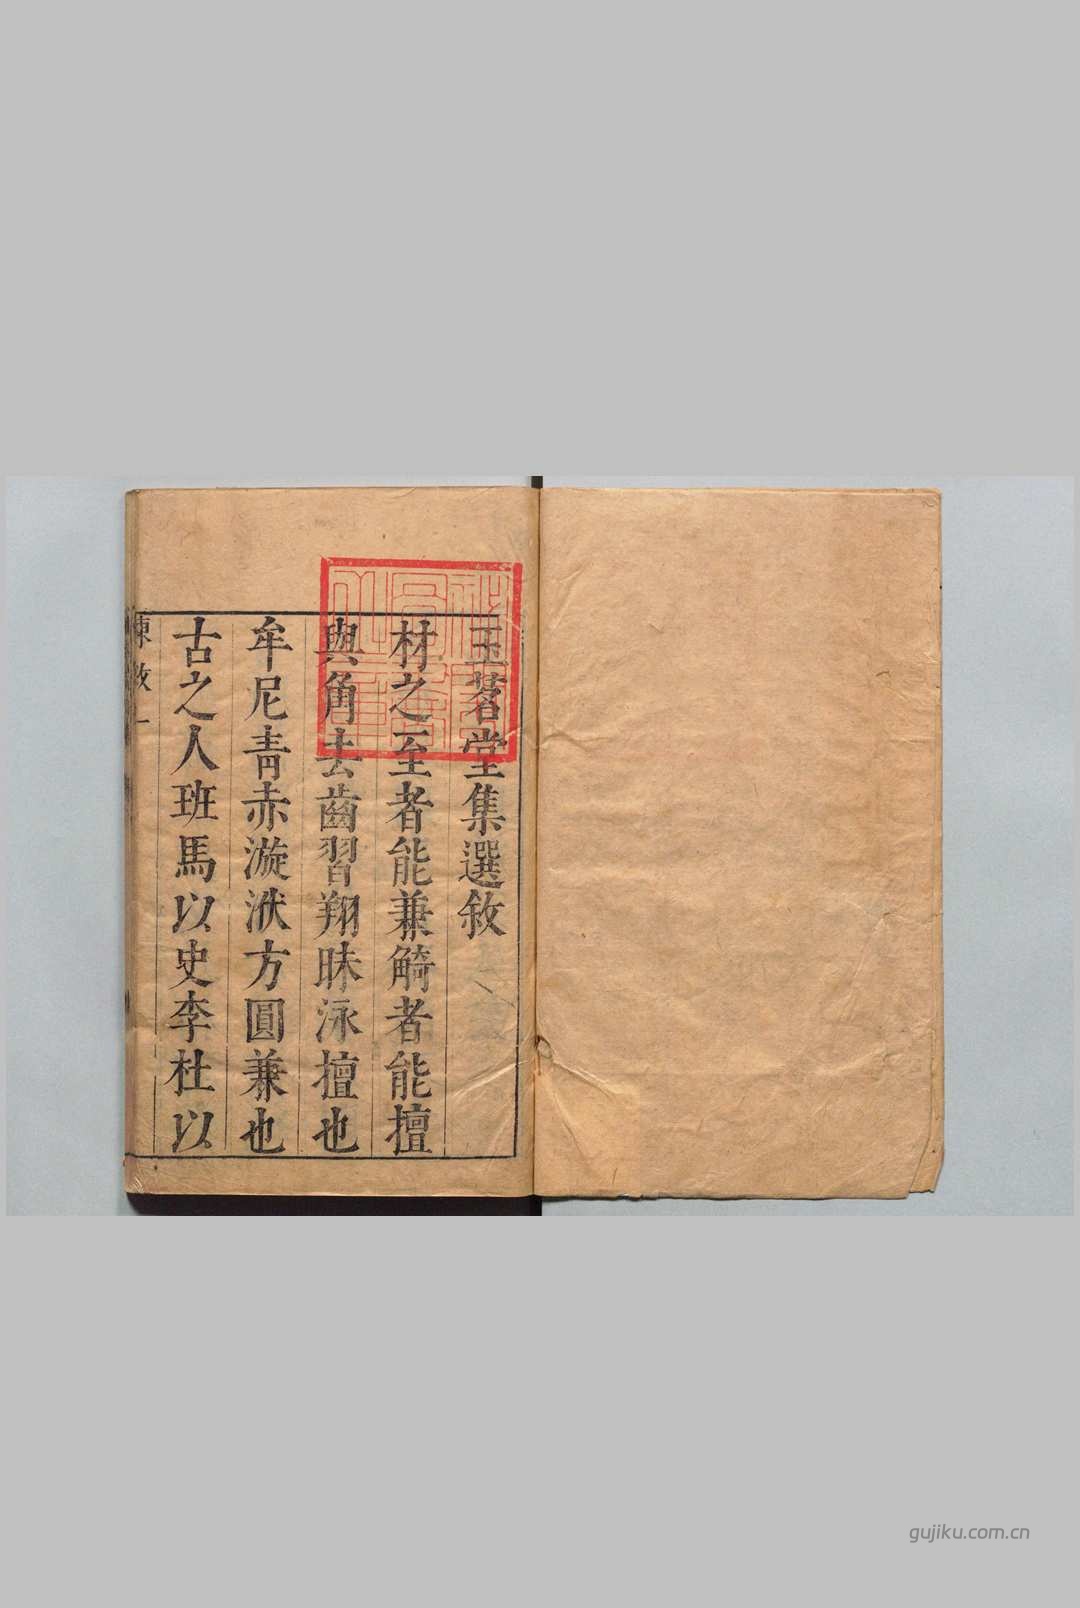 玉茗堂集選敘
材之至者能兼觭者能擅
與角去齒習翔昧泳擅也
牟尼青赤漩洑方圓兼也
古之人班馬以史李杜以
陳敘一
gujiku.com.cn